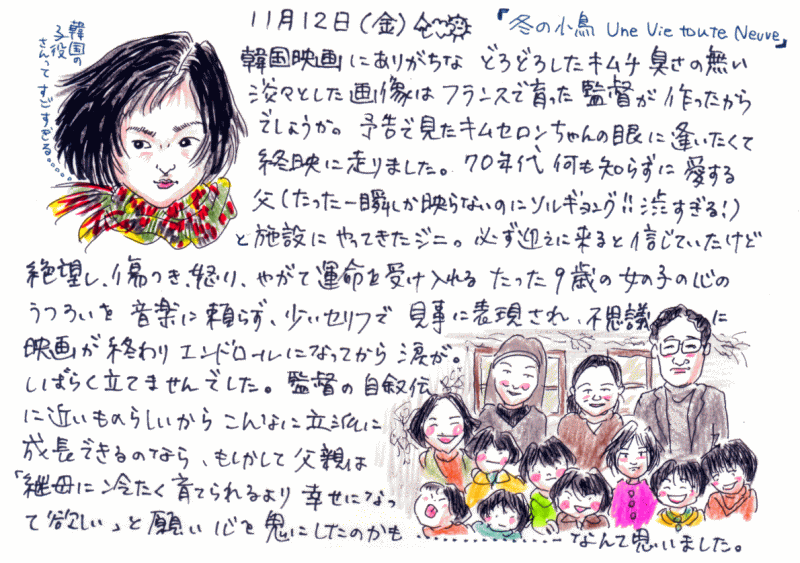 11月12日(金)
『冬の小鳥 Une Vie toute Neuve』
韓国の
子役
さんって すごすぎる。。。。。
韓国映画にありがちな どろどろしたキムチ臭さの無い
淡々とした画像は フランスで育った監督が 作ったから
でしょうか。 予告で見たキムセロンちゃんの眼に逢いたくて
終映に走りました。 70年代 何も知らずに 愛する
父(たった一瞬しか映らないのにソルギョング!!渋すぎる!)
と施設に やってきたジニ。必ず迎えに来ると信じていたけど
絶望し、傷つき、怒り、やがて運命を受け入れる たった9歳の女の子の心の
うつろいを 音楽に頼らず、少いセリフで 見事に表現され、不思議に
映画が終わりエンドロールになってから 涙が。
しばらく立てませんでした。 監督の自叙伝
に近いものらしいから こんなに立派に
成長できるのなら、もしかして父親は
「継母に冷たく育てられるより 幸せになっ
て欲しい」と願い 心を鬼にしたのかも・・・・・・・・・・・・・・・・なんて思いました。